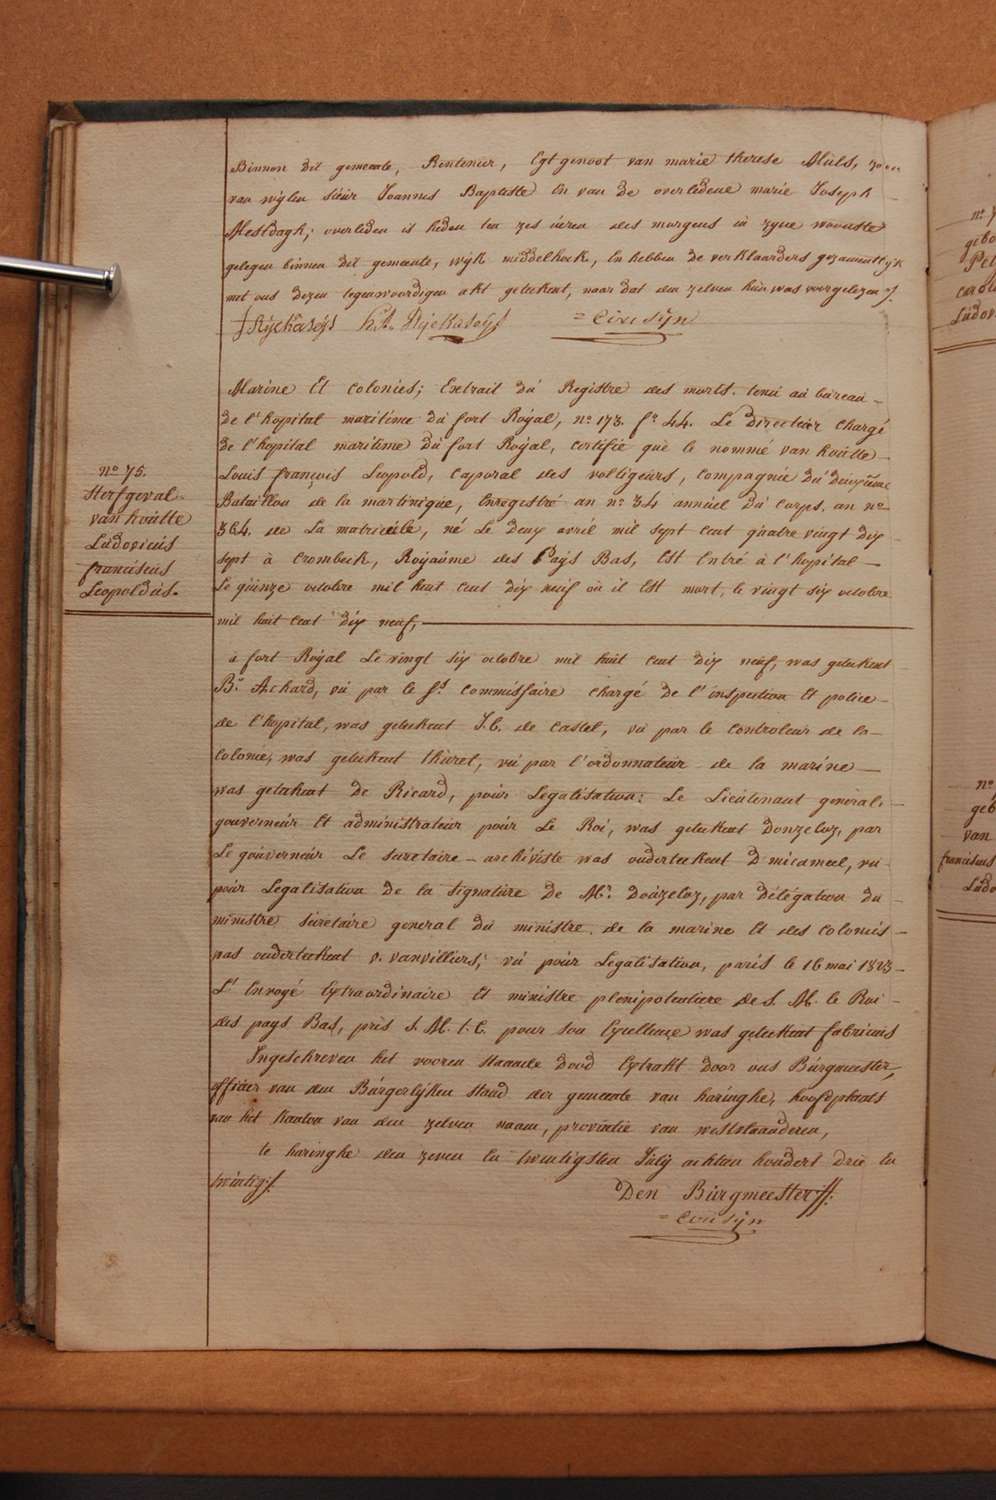 Binnen dit gemeente, Rentenier, Egtgenoot van marie therese Mùls, zoon
van wijlen sieùr Joannes Baptiste En van de overledene marie Joseph
Mesdagh; overleden is heden ten zes ùren des morgens in zyne wooùste
gelegen binnen dit gemeente, wyk middelhoek, En hebben de verklaarders gezamentlijk
met ons dezen tegenwoordigen akt geteekent, naar dat den zelven hùn was voorgelezen
Coùsijn
n° 75.
Sterfgeval
van hoùtte
Lùdovicùs
franciscùs
Leopoldùs.
Marine Et Colonies; Extrait dù Registre des morts tenù aù bùreaù
de l'hopital maritime dù fort Royal, n° 173. f° 44. Le Directeùr chargé
de l'hopital maritime Dù fort Royal, certifie qùe le nommé van hoùtte
Loùis françois Leopold, Caporal des voltigeùrs, compagnie Dù deùxieme
Bataillon de la martiniqùe, Enregistré aù n° 34 annùel Dù Corps, aù n°
364. de La matricùle, né Le deùx avril mil sept cent qùatre vingt dix
sept à Crombeek, Royaùme des Pays Bas, Est Entré à l'hopital
Le qùinze octobre mil hùit cent dix neùf où il Est mort, le vingt six octobre
mil hùit cent dix neùf,
à fort Royal Le vingt six octobre mil hùit cent dix neùf, was geteekent
B.r Achard, vù par le s.s Commissaire chargé de l'inspection Et police
de l'hopital, was geteekent J. C. de Castel, vù par le Controleùr de la
Colonie, was geteekent thùret, vù par l'ordonnateùr de la marine
was geteekent de Ricard, poùr Legalisation: Le Lieùtenant general
goùverneùr Et administrateùr poùr Le Roi, was geteekent Donzeloz, par
Le goùverneùr Le secretaire-archiviste was onderteekent D micameel, vù
poùr Legalisation de la signatùre de Mr. Donzeloz, par délégation dù
ministre secretaire general dù ministre de la marine Et des Colonies
was onderteekent v. vanvilliers; vù poùr Legalisation, paris le 16 mai 1823
L'Envoyé Extraordinaire Et ministre plenipotentiaire de S. M. le Roi
des pays Bas, près S. M. t. C. pour son Excellence was geteekent fabricius
Ingeschreven het vooren staande dood Extrakt door ons Bùrgmeester,
officier van den Bùrgerlijken stand der gemeente van haringhe, hoofdplaats
van het Kanton van den zelven naam, provintie van westvlaanderen,
te haringhe den zeven En twintigsten Jùly achtien hondert drie En
twintig
Den Bùrgmeester
Coùsijn